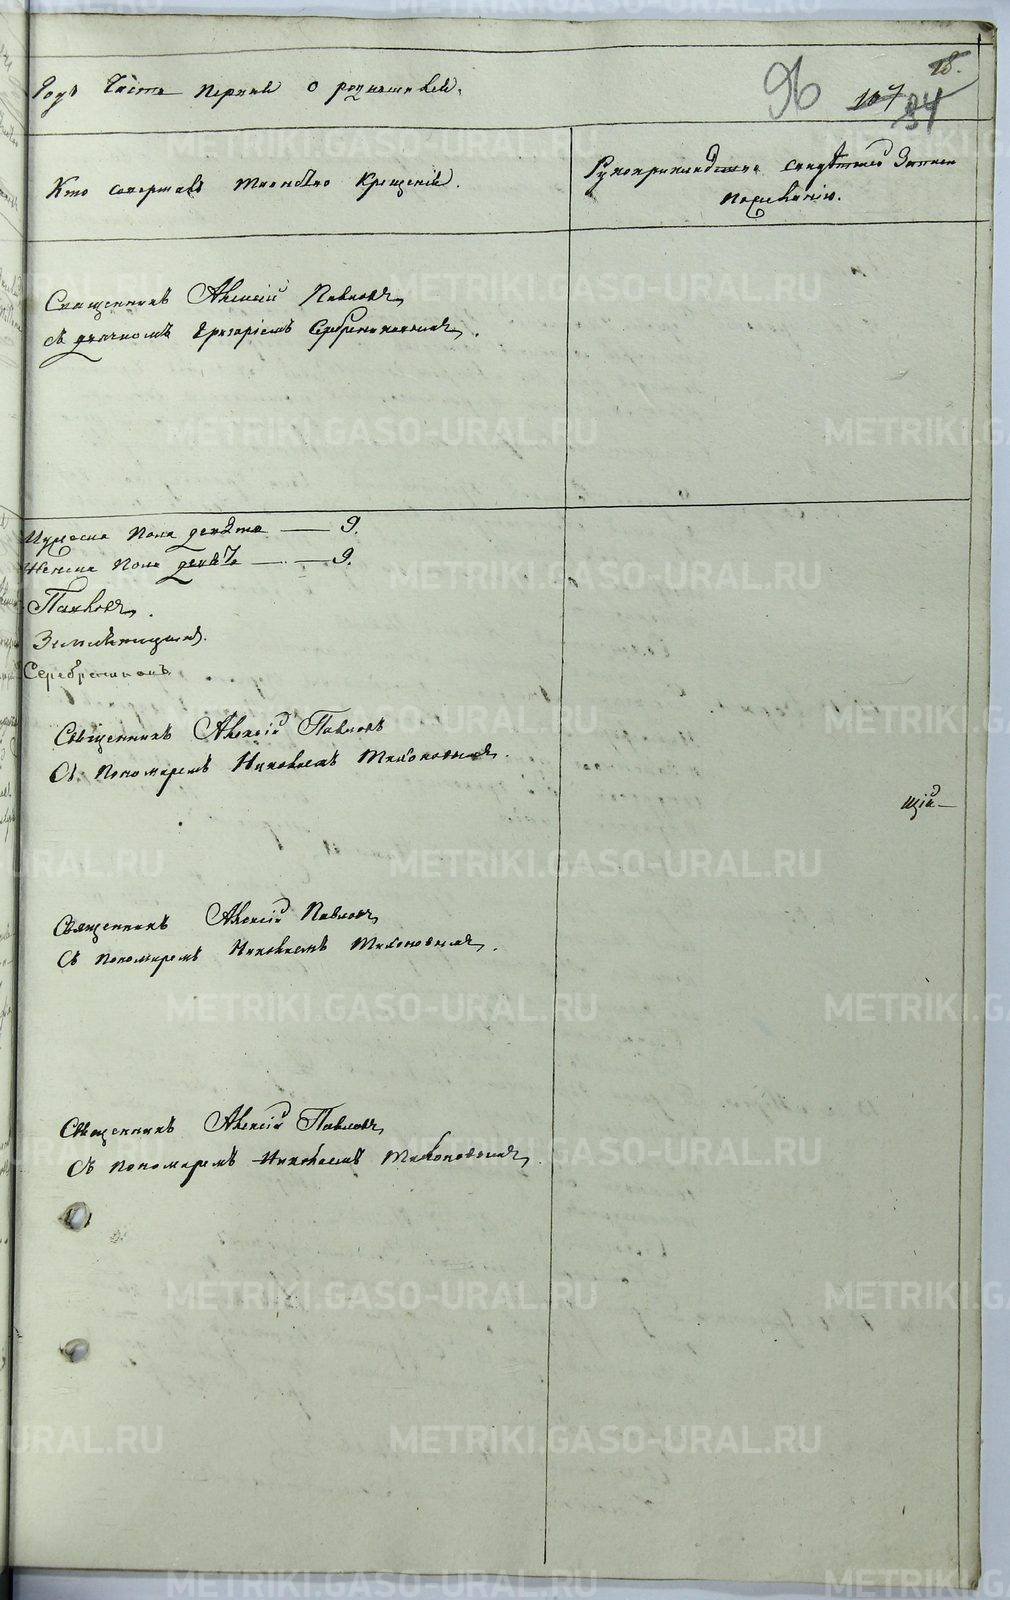 18.
96 107 94
Годъ Часть первая о родившихся.
Кто совершалъ таинство крещенія.
Рукоприкладство свидѣтелей записи
по желанію.
Священникъ Алексій Павловъ
съ дьячкомъ Григоріемъ Серебренниковымъ.
Мужеска пола девять — 9.
Женска пола девять — 9.
Павловъ.
Серебренниковъ
Священникъ Алексій Павловъ
Съ пономаремъ Николаемъ Тихоновымъ.
щій
Священникъ Алексій Павловъ
Съ пономаремъ Николаемъ Тихоновымъ.
Священникъ Алексій Павловъ
Съ пономаремъ Николаемъ Тихоновымъ.
METRIKI.GASO-URAL.RU